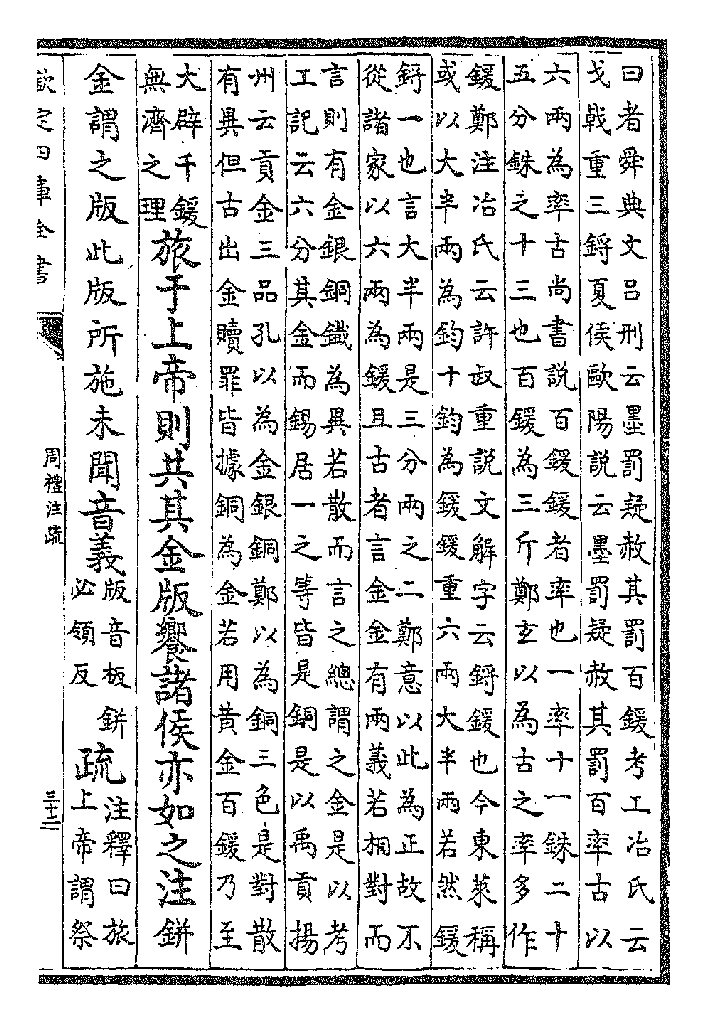 曰者舜典文吕刑云墨罰疑赦其罰百鍰考工冶氏云
戈戟重三鋝夏侯歐陽說云墨罰疑赦其罰百率古以
六兩為率古尚書說百鍰鍰者率也一率十一銖二十
五分銖之十三也百鍰為三斤鄭玄以為古之率多作
鍰鄭注冶氏云許叔重說文解字云鋝鍰也今東萊稱
或以大半兩為鈞十鈞為鍰鍰重六兩大半兩若然鍰
鋝一也言大半兩是三分兩之二鄭意以此為正故不
從諸家以六兩為鍰且古者言金金有兩義若相對而
言則有金銀銅鐵為異若散而言之總謂之金是以考
工記云六分其金而錫居一之等皆是銅是以禹貢揚
州云貢金三品孔以為金銀銅鄭以為銅三色是對散
有異但古出金贖罪皆據銅為金若用黄金百鍰乃至
大辟千鍰
無濟之理
旅于上帝則共其金版饗諸侯亦如之注鉼
金謂之版此版所施未聞音義
版音板鉼
必領反
疏
注釋曰旅
上帝謂祭
欽定四庫全書
周禮注疏
三十二